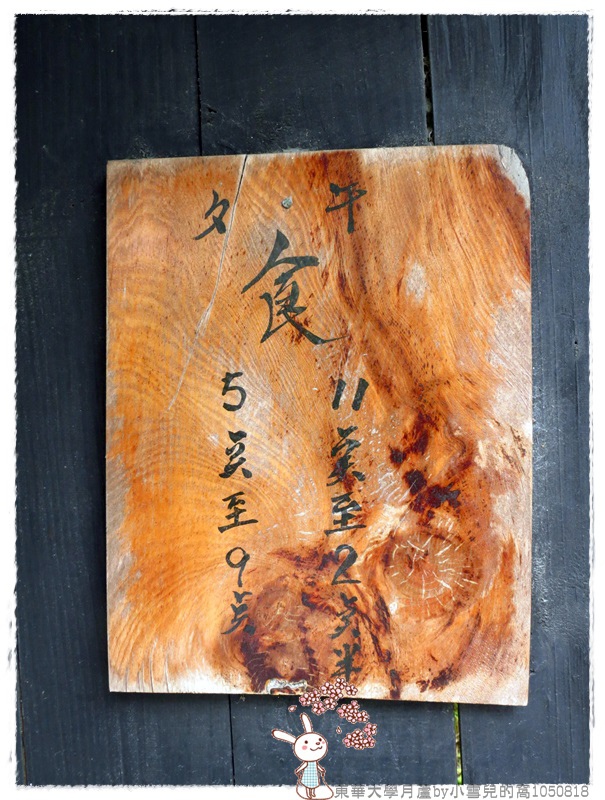 午
夕
食
11点至2点半
5点至9点
東華大學月廬by小雪兒的窩1050818